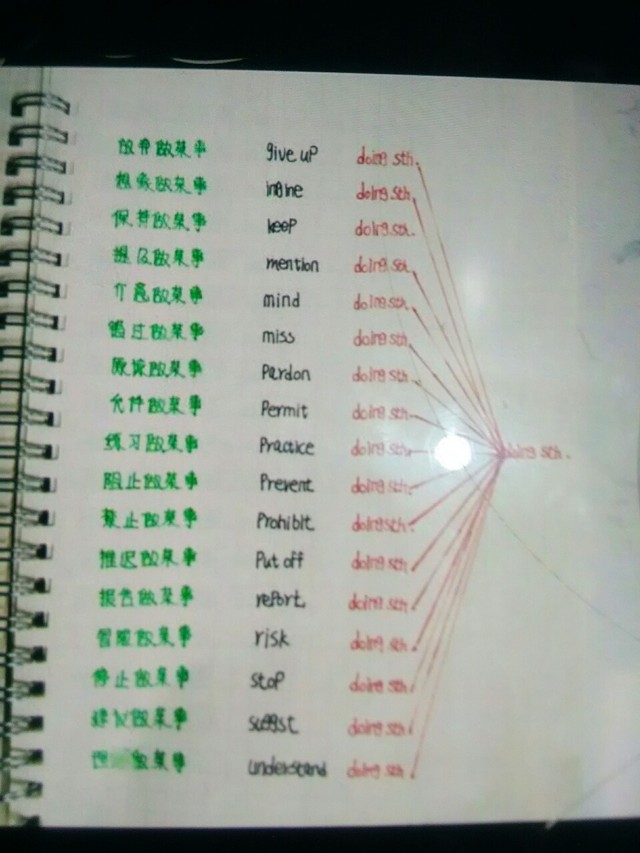 放弃做某事 give up doing sth.
想象做某事 ingine doing sth.
保持做某事 keep doing sth.
提及做某事 mention doing sth.
介意做某事 mind doing sth.
错过做某事 miss doing sth.
原谅做某事 Pardon doing sth.
允许做某事 Permit doing sth.
练习做某事 Practice doing sth. doing sth.
阻止做某事 Prevent doing sth.
禁止做某事 Prohibit doing sth.
推迟做某事 Put off doing sth.
报告做某事 report doing sth.
冒险做某事 risk doing sth.
停止做某事 stop doing sth.
建议做某事 suggst doing sth.
做某事 understand doing sth.